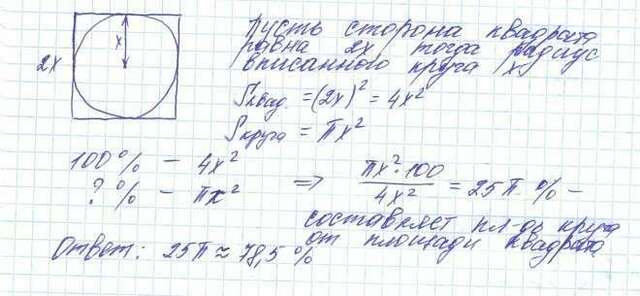 Пусть сторона квадрата
равна 2x тогда радиус
вписанного круга x.
x
2x
Sквад. = (2x)² = 4x²
Sкруга = πx²
100% – 4x²
? % – πx²
⇒ πx²·100 / 4x² = 25π % –
составляет пл-дь круга
от площади квадрата
Ответ: 25π ≈ 78,5 %